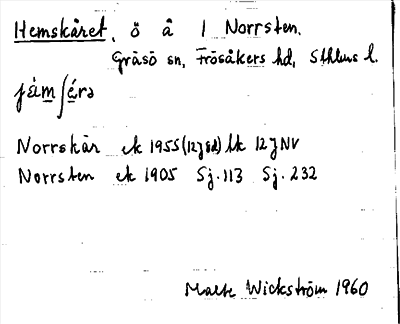 Hemskäret, ö å 1 Norrsten.
Gräsö sn, Frösåkers hd, Sthlms l.
Norrskär ek 1955 (12J8d) bk 12J NV
Norrsten ek 1905 Sj.113 Sj.232
Malte Wickström 1960